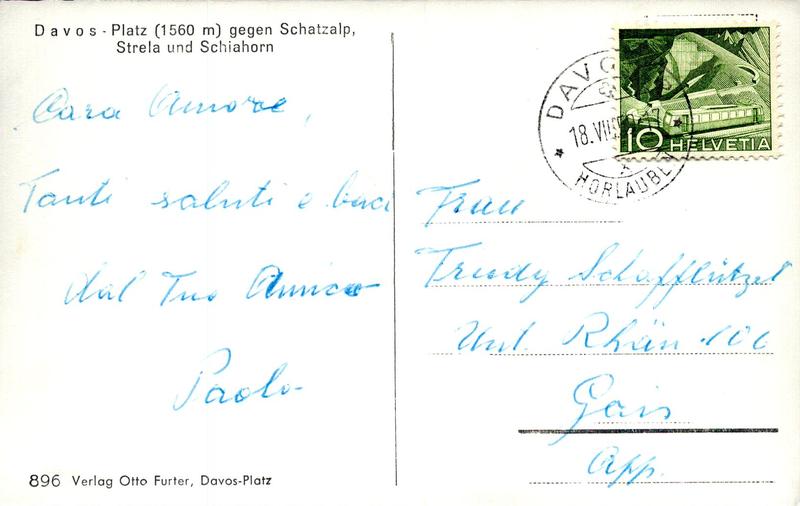 Davos - Platz (1560 m) gegen Schatzalp,
Strela und Schiahorn
Cara Amore,
Tanti saluti e baci
dal Tuo Amico
Paolo
896 Verlag Otto Furter, Davos-Platz
DAVOS
18.VII.
HORLAUBEN
10 HELVETIA
Frau
Trudy Schafflützel
Unt. Rhän 106
Gais
App.